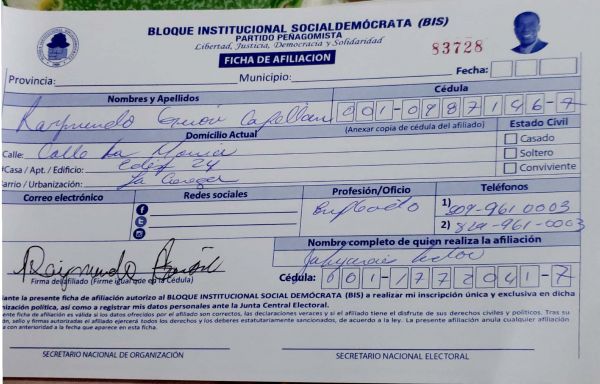 BLOQUE INSTITUCIONAL SOCIALDEMÓCRATA (BIS)
PARTIDO PEÑAGOMISTA
Libertad, Justicia, Democracia y Solidaridad
83728
FICHA DE AFILIACION
Fecha:
Provincia: Municipio:
Nombres y Apellidos Cédula
Raymundo Capellan 001-0987146-7
Domicilio Actual (Anexar copia de cédula del afiliado) Estado Civil
Calle: Calle La Casado
#Casa / Apt. / Edificio: Edif 24 Soltero
Barrio / Urbanización: La Cienega Conviviente
Correo electrónico Redes sociales Profesión/Oficio Teléfonos
Empleado 1) 809-961 0003
2) 829-961-0003
Nombre completo de quien realiza la afiliación
Raymundo
Firma del afiliado (Firme igual que en la Cédula) Cédula: 001-1772041-7
iante la presente ficha de afiliación autorizo al BLOQUE INSTITUCIONAL SOCIAL DEMÓCRATA (BIS) a realizar mi inscripción única y exclusiva en dicha
nización política, así como a registrar mis datos personales ante la Junta Central Electoral.
ente ficha de afiliación es válida si los datos ofrecidos por el afiliado son correctos, las declaraciones veraces y si el afiliado tiene el disfrute de sus derechos civiles y políticos. Tras su
sello y firmas autorizadas el afiliado ejercerá todos los derechos y los deberes estatutariamente sancionados, de acuerdo a la ley. La presente afiliación anula cualquier afiliación
a con anterioridad a la fecha que aparece en esta ficha.
SECRETARIO NACIONAL DE ORGANIZACIÓN SECRETARIO NACIONAL ELECTORAL